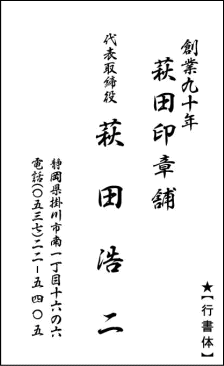 創業九十年
萩田印章舗
代表取締役
萩田浩二
静岡県掛川市南一丁目十六の六
電話(〇五三七)二二-五四〇五
★【行書体】